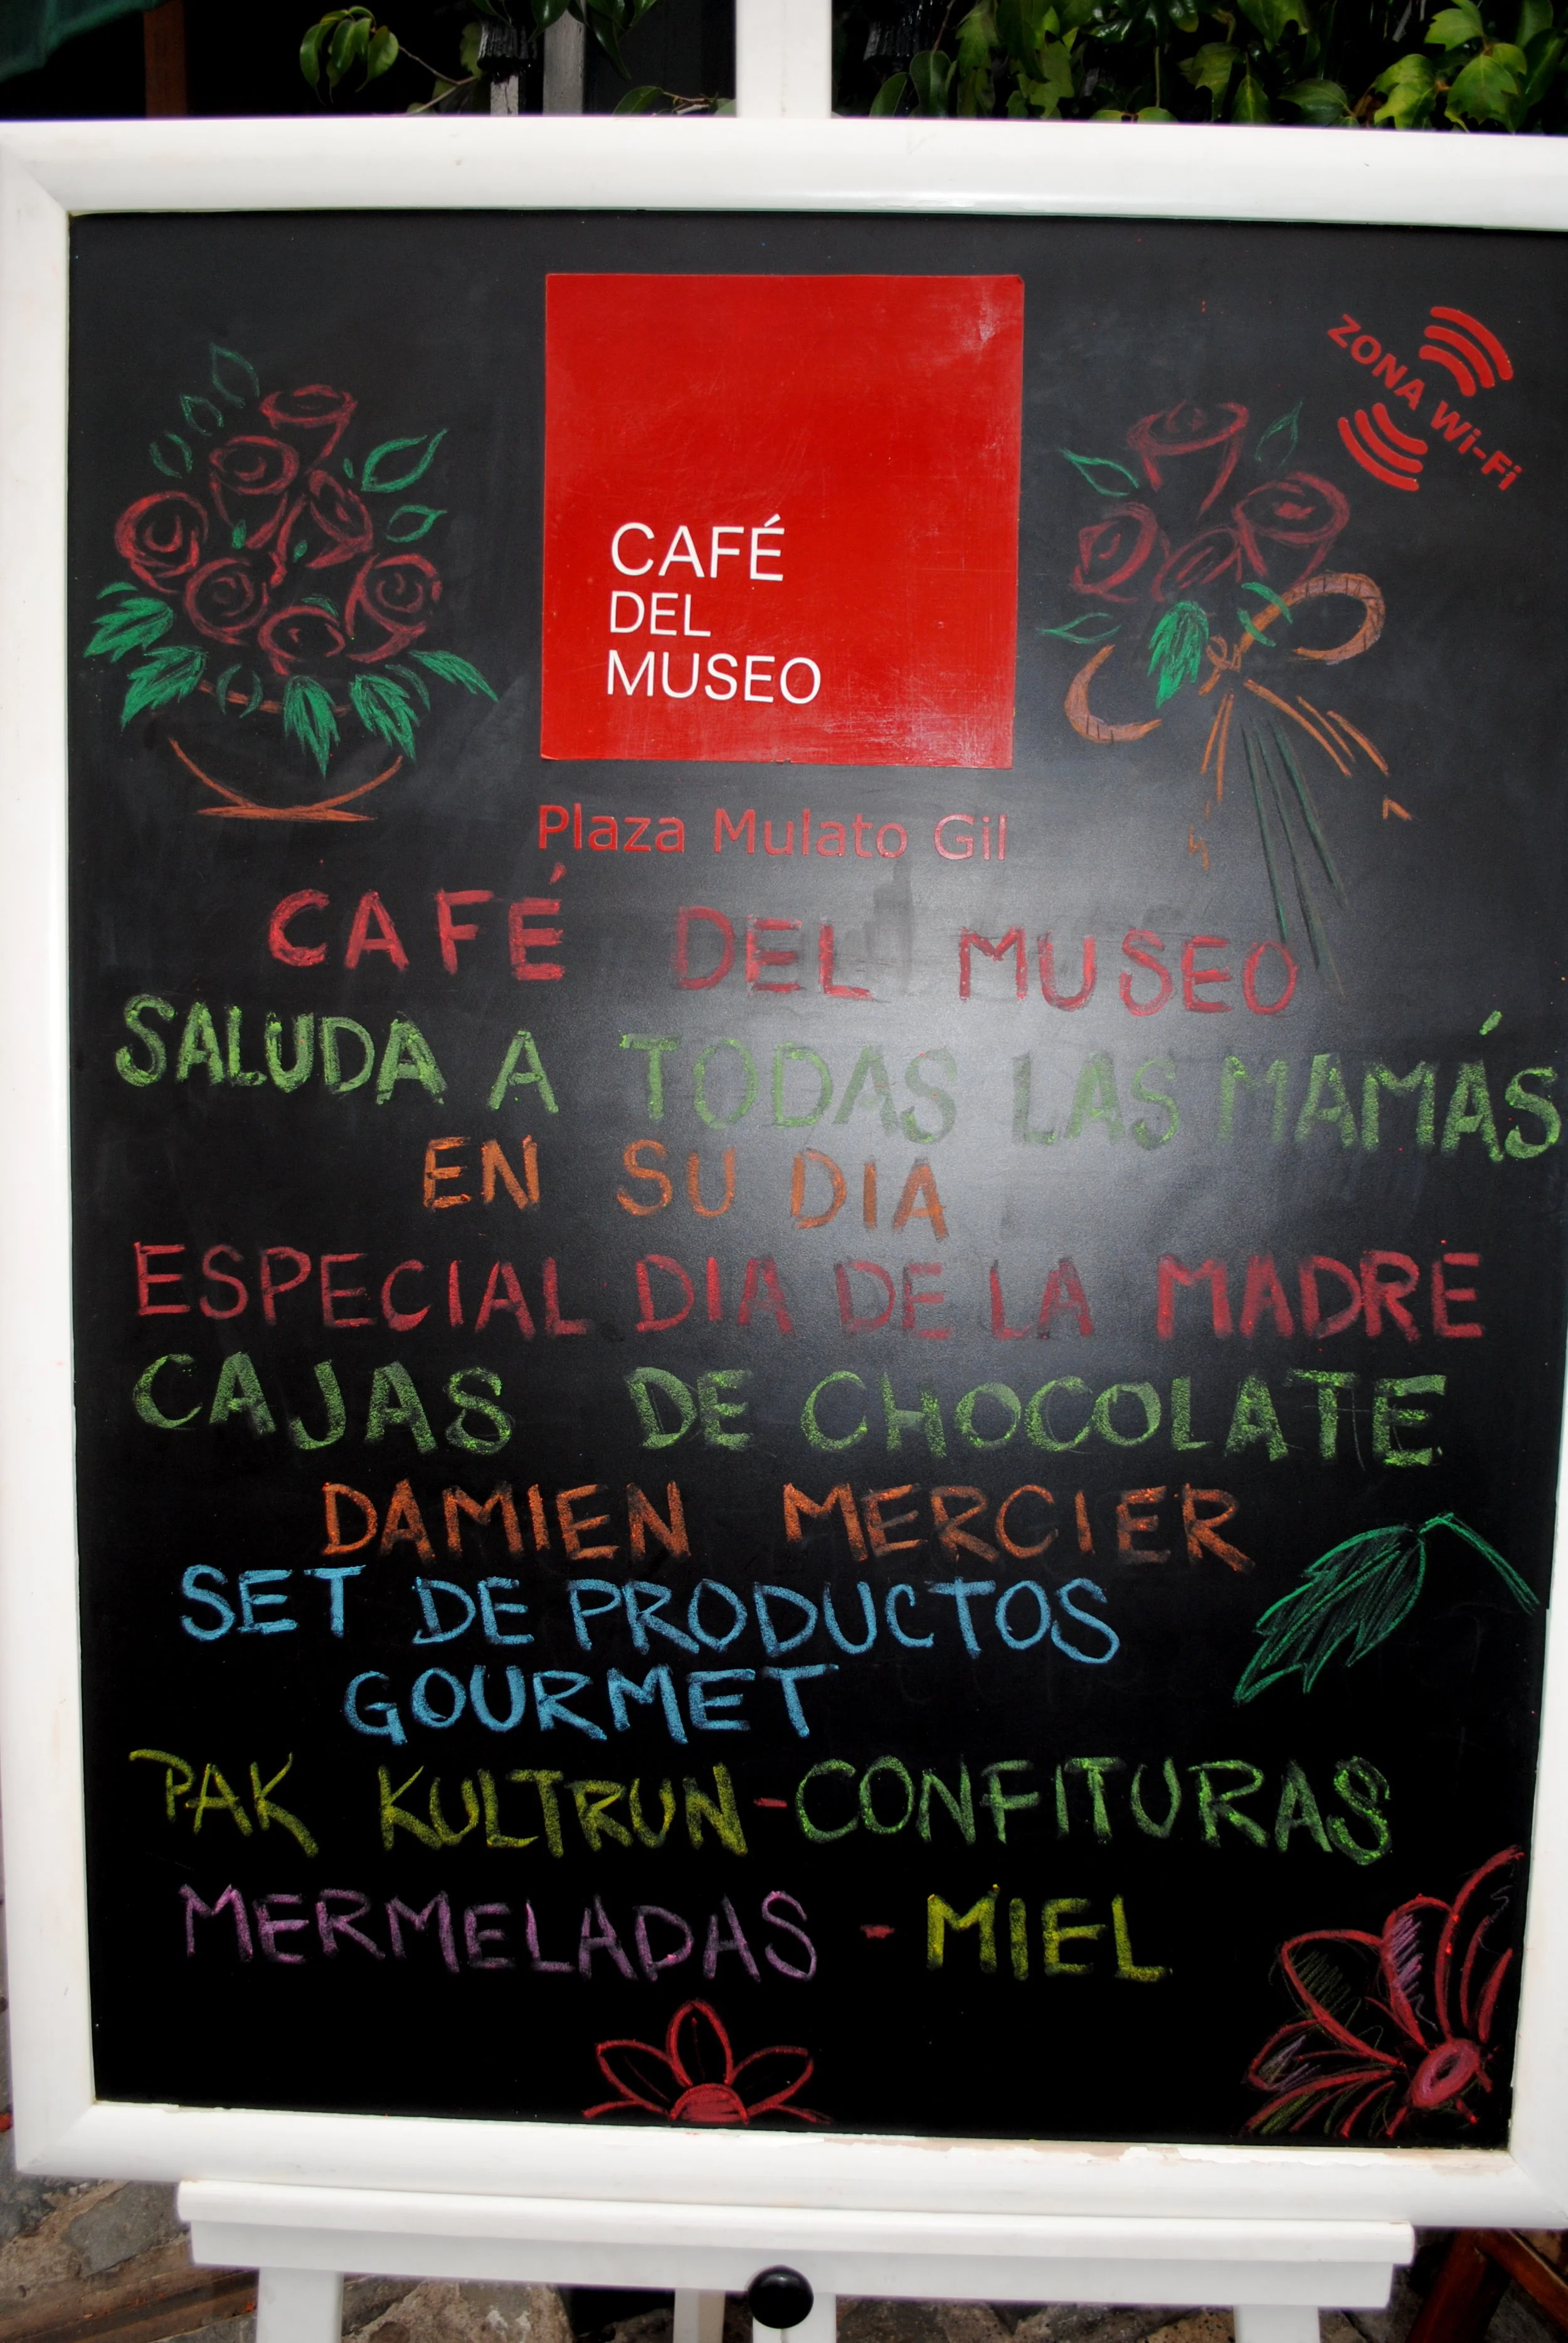 ZONA Wi-Fi
CAFÉ
DEL
MUSEO
Plaza Mulato Gil
CAFÉ DEL MUSEO
SALUDA A TODAS LAS MAMÁS
EN SU DIA
ESPECIAL DIA DE LA MADRE
CAJAS DE CHOCOLATE
DAMIEN MERCIER
SET DE PRODUCTOS
GOURMET
PAK KULTRUN-CONFITURAS
MERMELADAS - MIEL